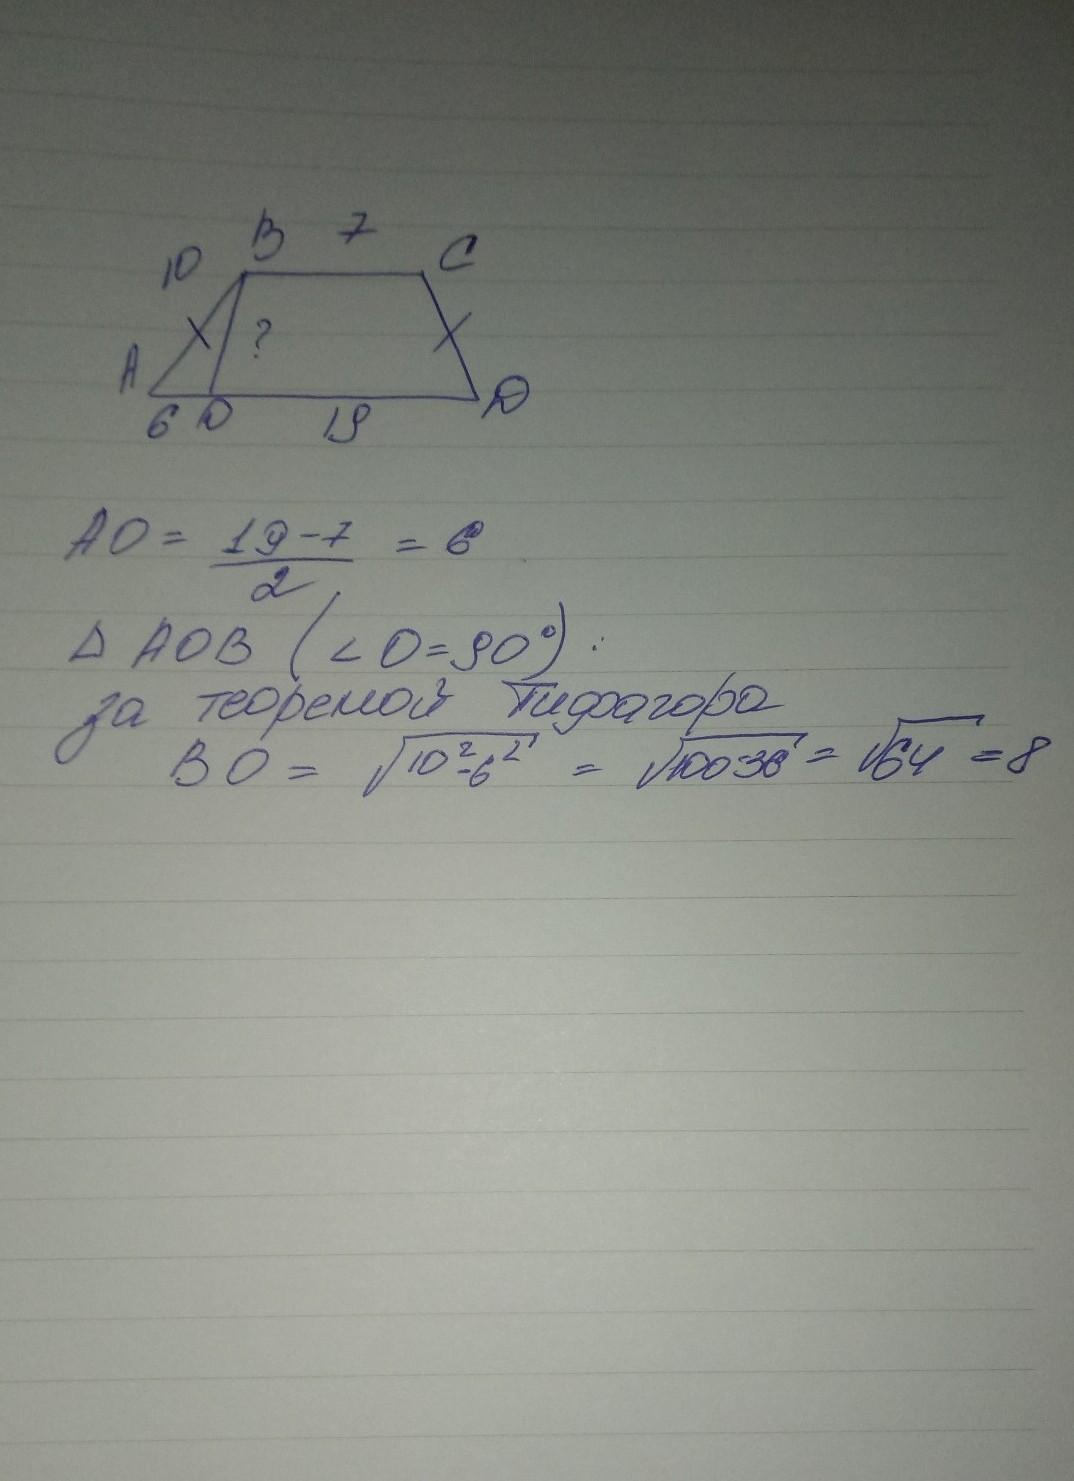 B 7 C
10
?
A
6 D 19 D
AO = 19-7/2 = 6
Δ AOB (∠O=90°):
за теоремой Пифагора
BO = √10²-6² = √10036 = √64 = 8